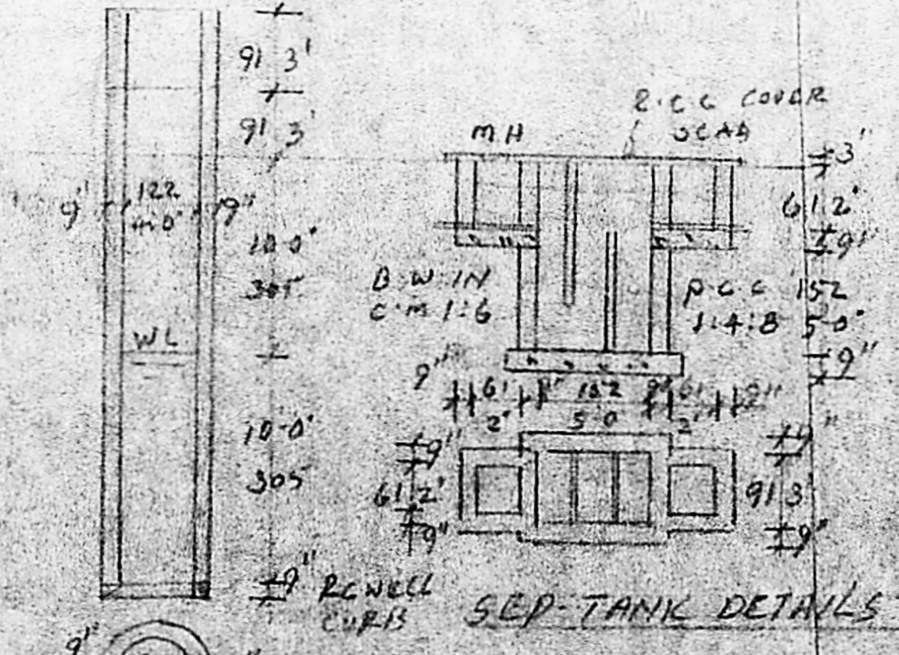 91 3'
91 3'
9"
122
4'-0"
9"
10-0"
305
WL
10-0"
305
9"
R.C WELL
CURB
9"
M.H
R.C.C COVER
SLAB
3"
61 2'
9"
B.W IN
C.M 1:6
P.C.C
1:4:8
152
5-0"
9"
9"
61
2'
9"
152
5-0
9"
61
2'
9"
9"
61 2'
9"
9"
91 3'
9"
SEP-TANK DETAILS